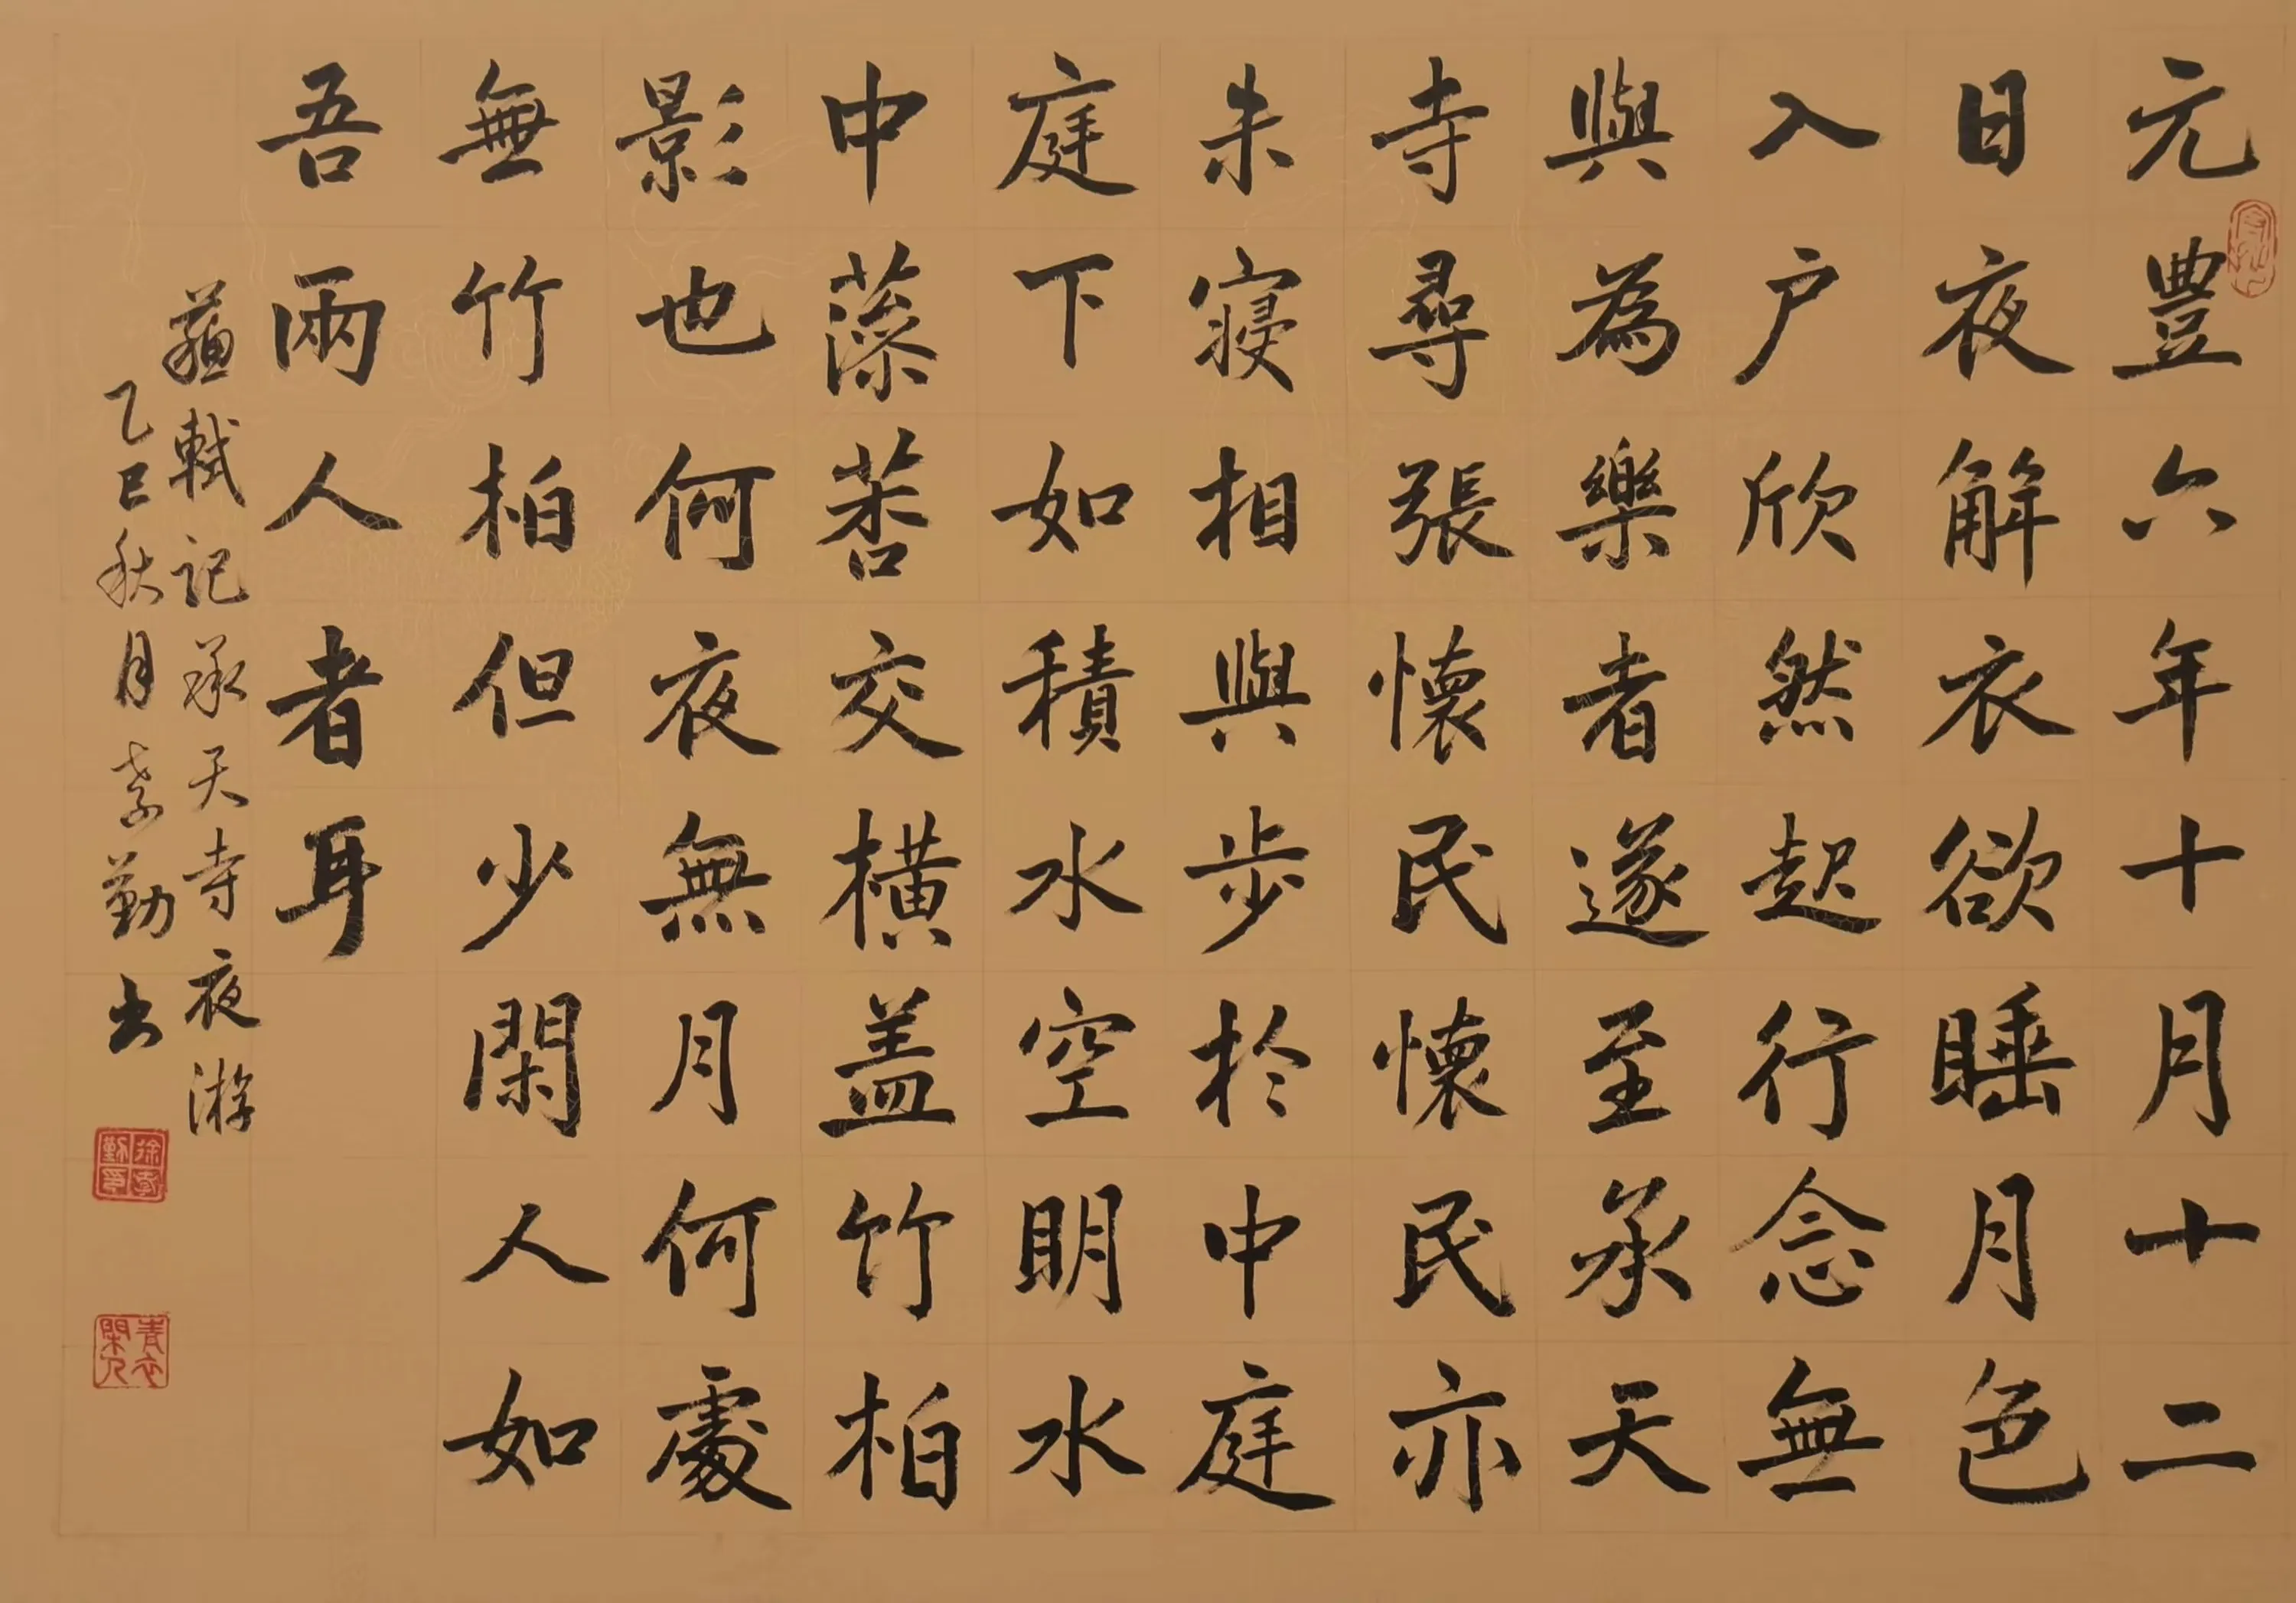 元豐六年十月十二
日夜解衣欲睡月色
入户欣然起行念無
與為樂者遂至承天
寺尋張懷民懷民亦
未寢相與步於中庭
庭下如積水空明水
中藻荇交橫盖竹柏
影也何夜無月何處
無竹柏但少閑人如
吾兩人者耳
蘇軾記承天寺夜游
乙巳秋月孝勤书
徐孝勤印
青衣閑人